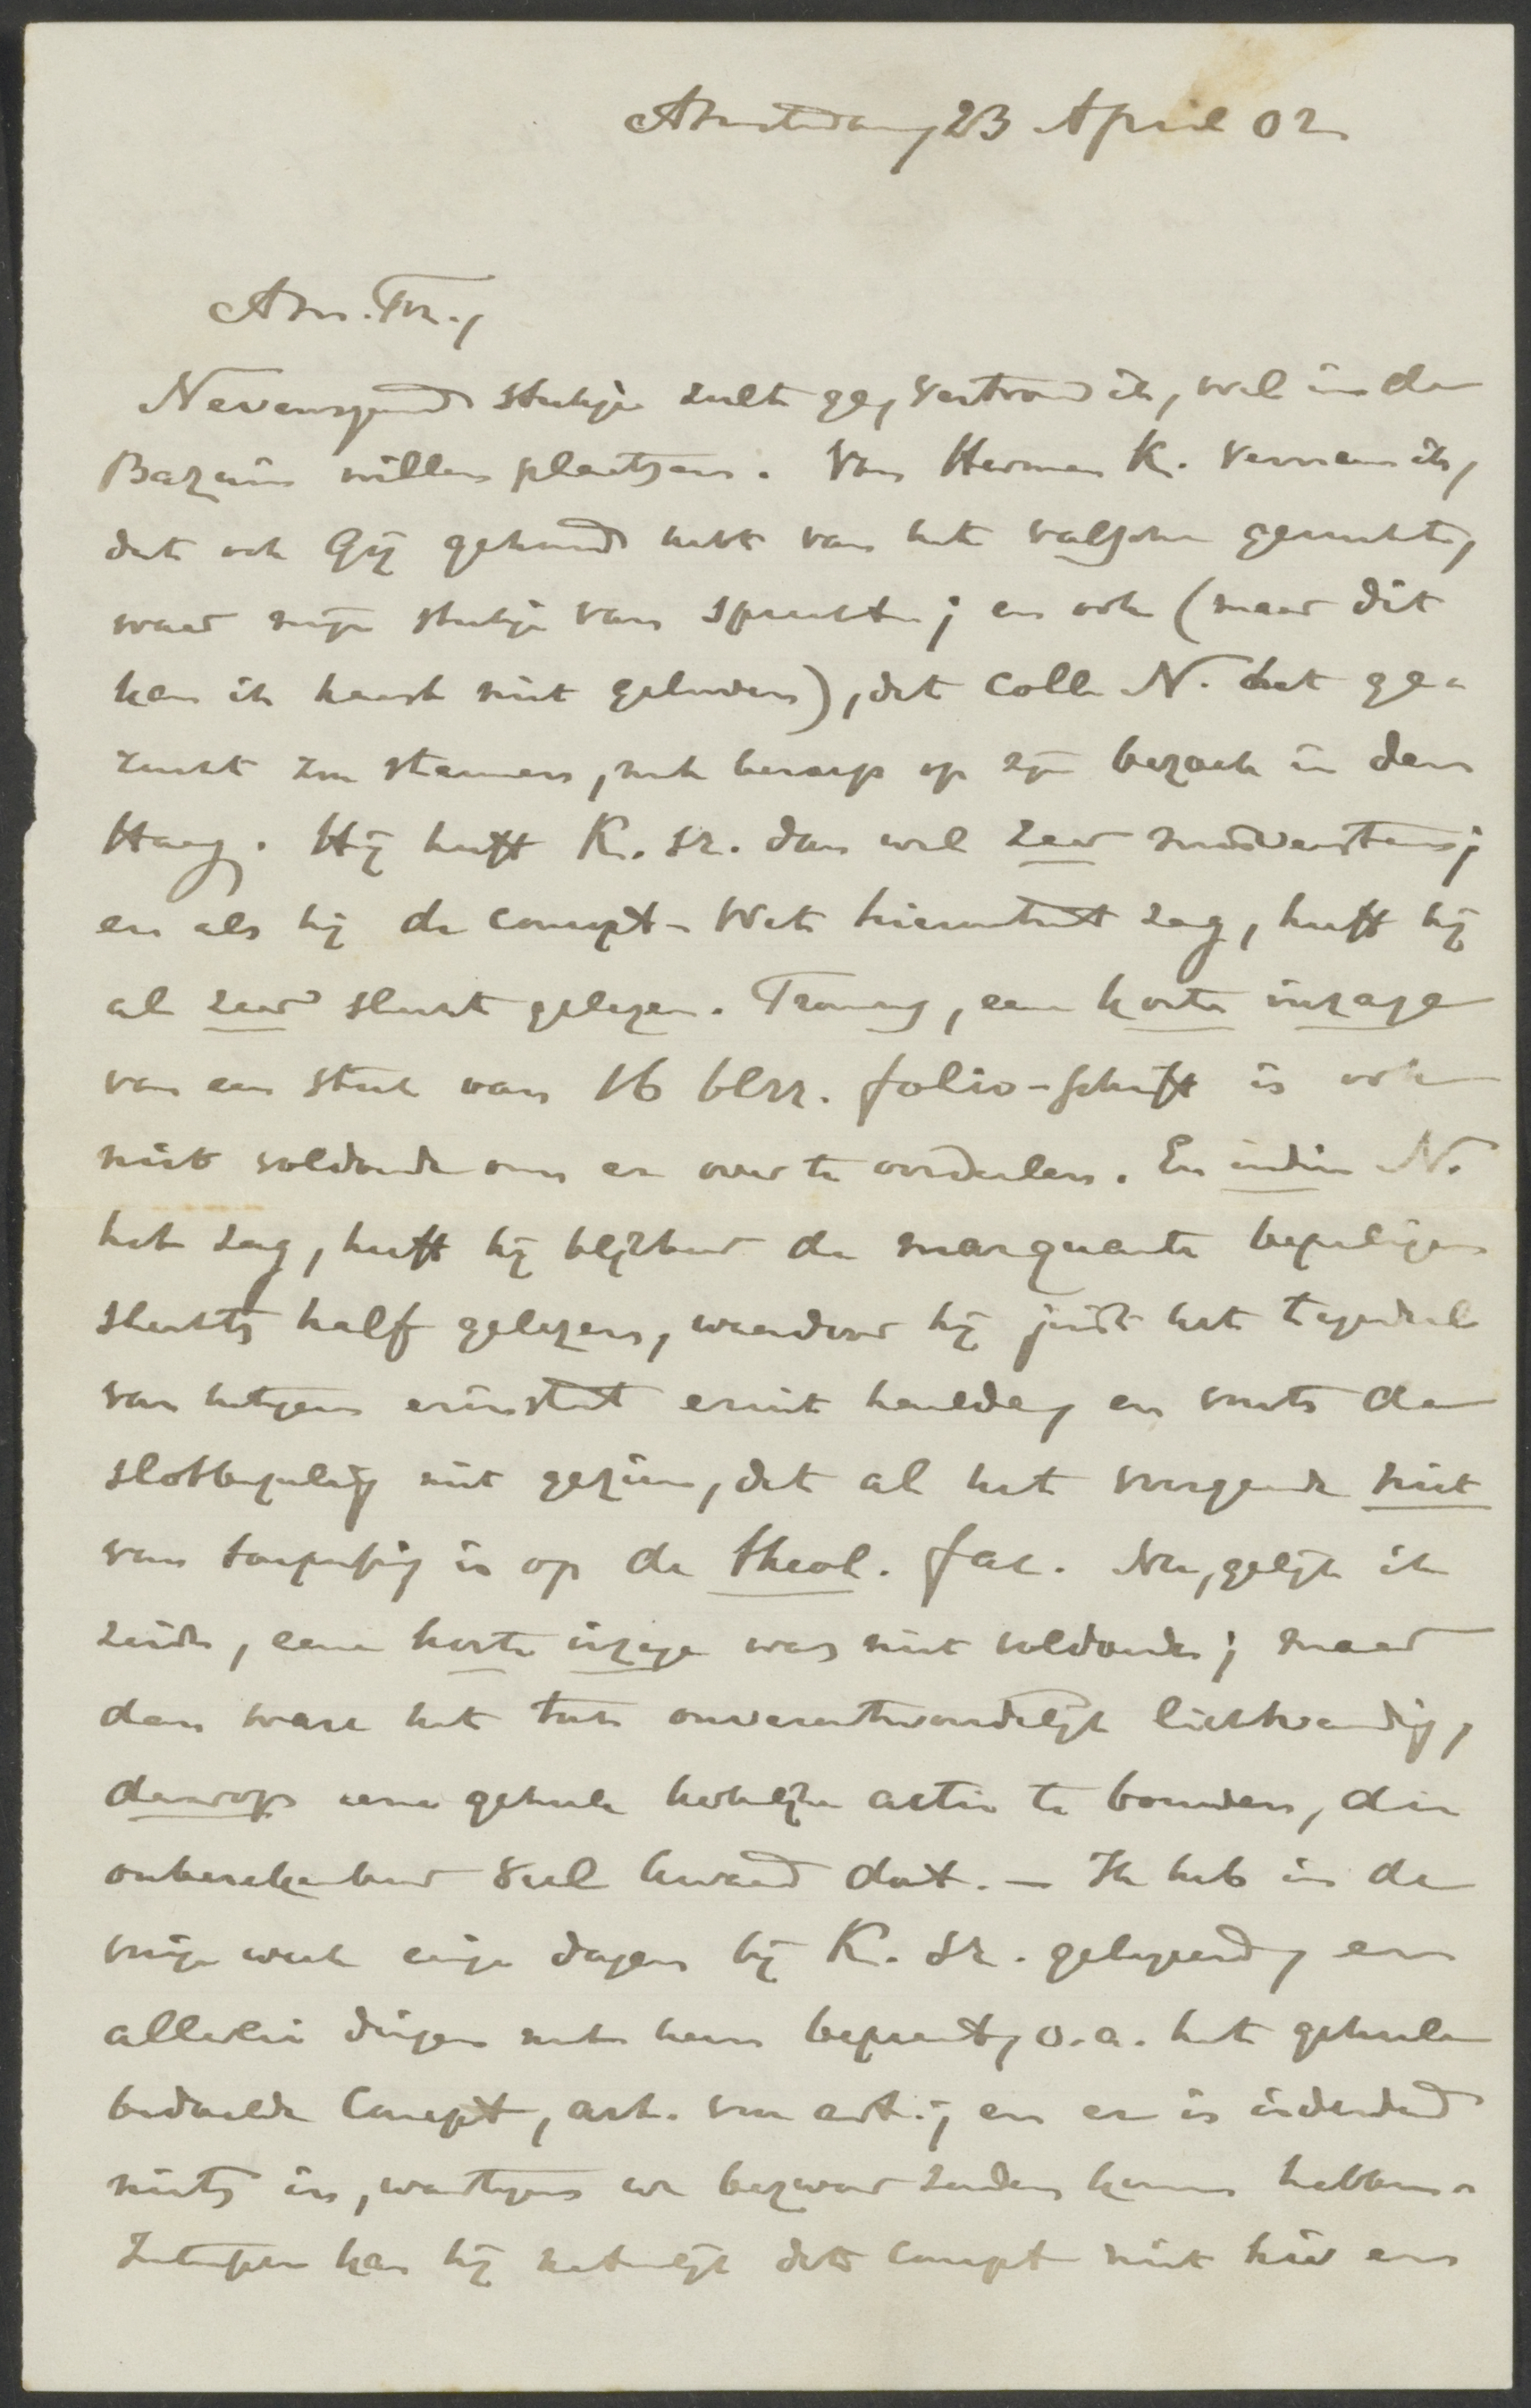 Amsterdam, 23 April 02
Am. Fr.,
Nevensgaand stukje zult ge, vertrouw ik, wel in de
Bazuin willen plaatsen. Van Herman K. vernam ik,
dat ook Gij gehoord hebt van het valsche gerucht,
waar mijn stukje van spreekt; en ook (maar dit
kan ik haast niet gelooven), dat coll. N. dat ge-
rucht zou stavenen, met beroep op zijn bezoek in den
Haag. Hij heeft K. sr. dan wel zeer misverstaan;
en als hij de concept-Wet hieromtrent zag, heeft hij
al zeer slecht gelezen. Trouwens, een korte inzage
van een stuk van 16 blzz. folio-schrift is ook
niet voldoende om er over te oordeelen. En indien N.
het zag, heeft hij blijkbaar de marquante bepalingen
slechts half gelezen, waardoor hij juist het tegendeel
van hetgeen erin staat eruit haalde, en voorts de
slotbepaling niet gezien, dat al het voorgaande niet
van toepassing is op de theol. fac. Nu, gelijk ik
zeide, eene korte inzage was niet voldoende; maar
dan ware het toch onverantwoordelijk lichtvaardig,
daarop eene geheele kerkelijke actie te bouwen, die
onberekenbaar veel kwaad doet. – Ik heb in de
vorige week eenige dagen bij K. sr. gelogeerd, en
allerlei dingen met hem besproken, o.a. het geheele
bedoelde Concept, art. voor art.; en er is inderdaad
niets in, waartegen we bezwaar zouden kunnen hebben.
Intusschen kan hij natuurlijk dat concept niet hier en